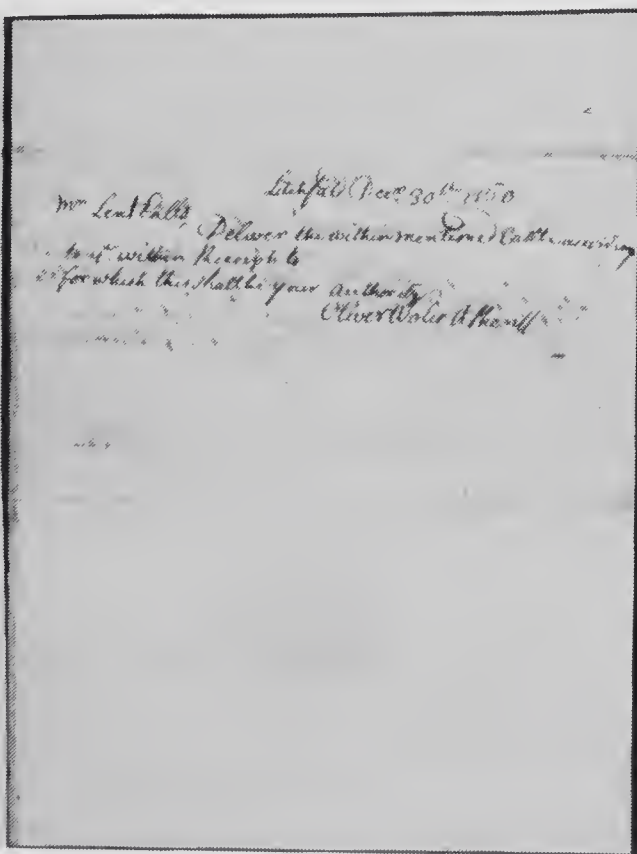 Litchfield Decr 30th
Mr
Deliver the within mentioned Cattle according
to ye within Receipt
for which this shall be your Authority
Oliver Wolcott Sheriff